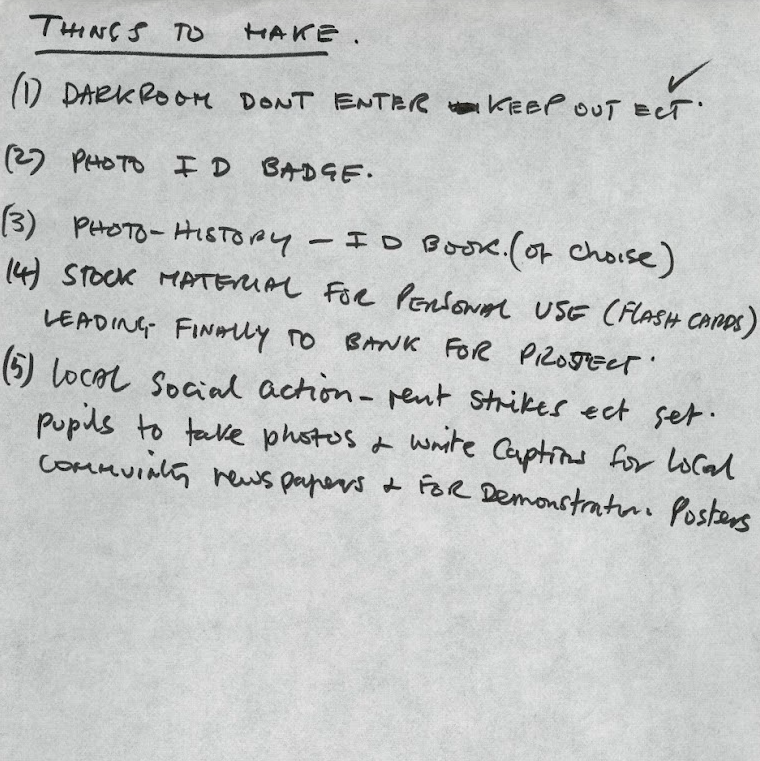 THINGS TO MAKE.
(1) DARKROOM DONT ENTER KEEP OUT ECT.
(2) PHOTO I D BADGE.
(3) PHOTO-HISTORY - I D BOOK. (of choise)
(4) STOCK MATERIAL FOR PERSONAL USE (FLASH CARDS)
LEADING FINALLY TO BANK FOR PROJECT.
(5) LOCAL Social action - rent strikes ect get.
pupils to take photos & write Captions for local
community newspapers & FOR Demonstration. Posters